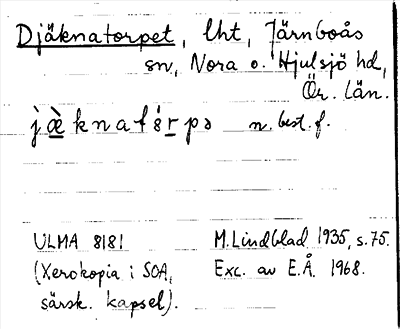 Djäknatorpet, lht, Järnboås
sn, Nora o. Hjulsjö hd,
Ör. län.
n. best. f.
ULMA 8181 M. Lindblad 1935, s. 75.
(Xerokopia i SOA, Exc. av E.Å. 1968.
särsk. kapsel).